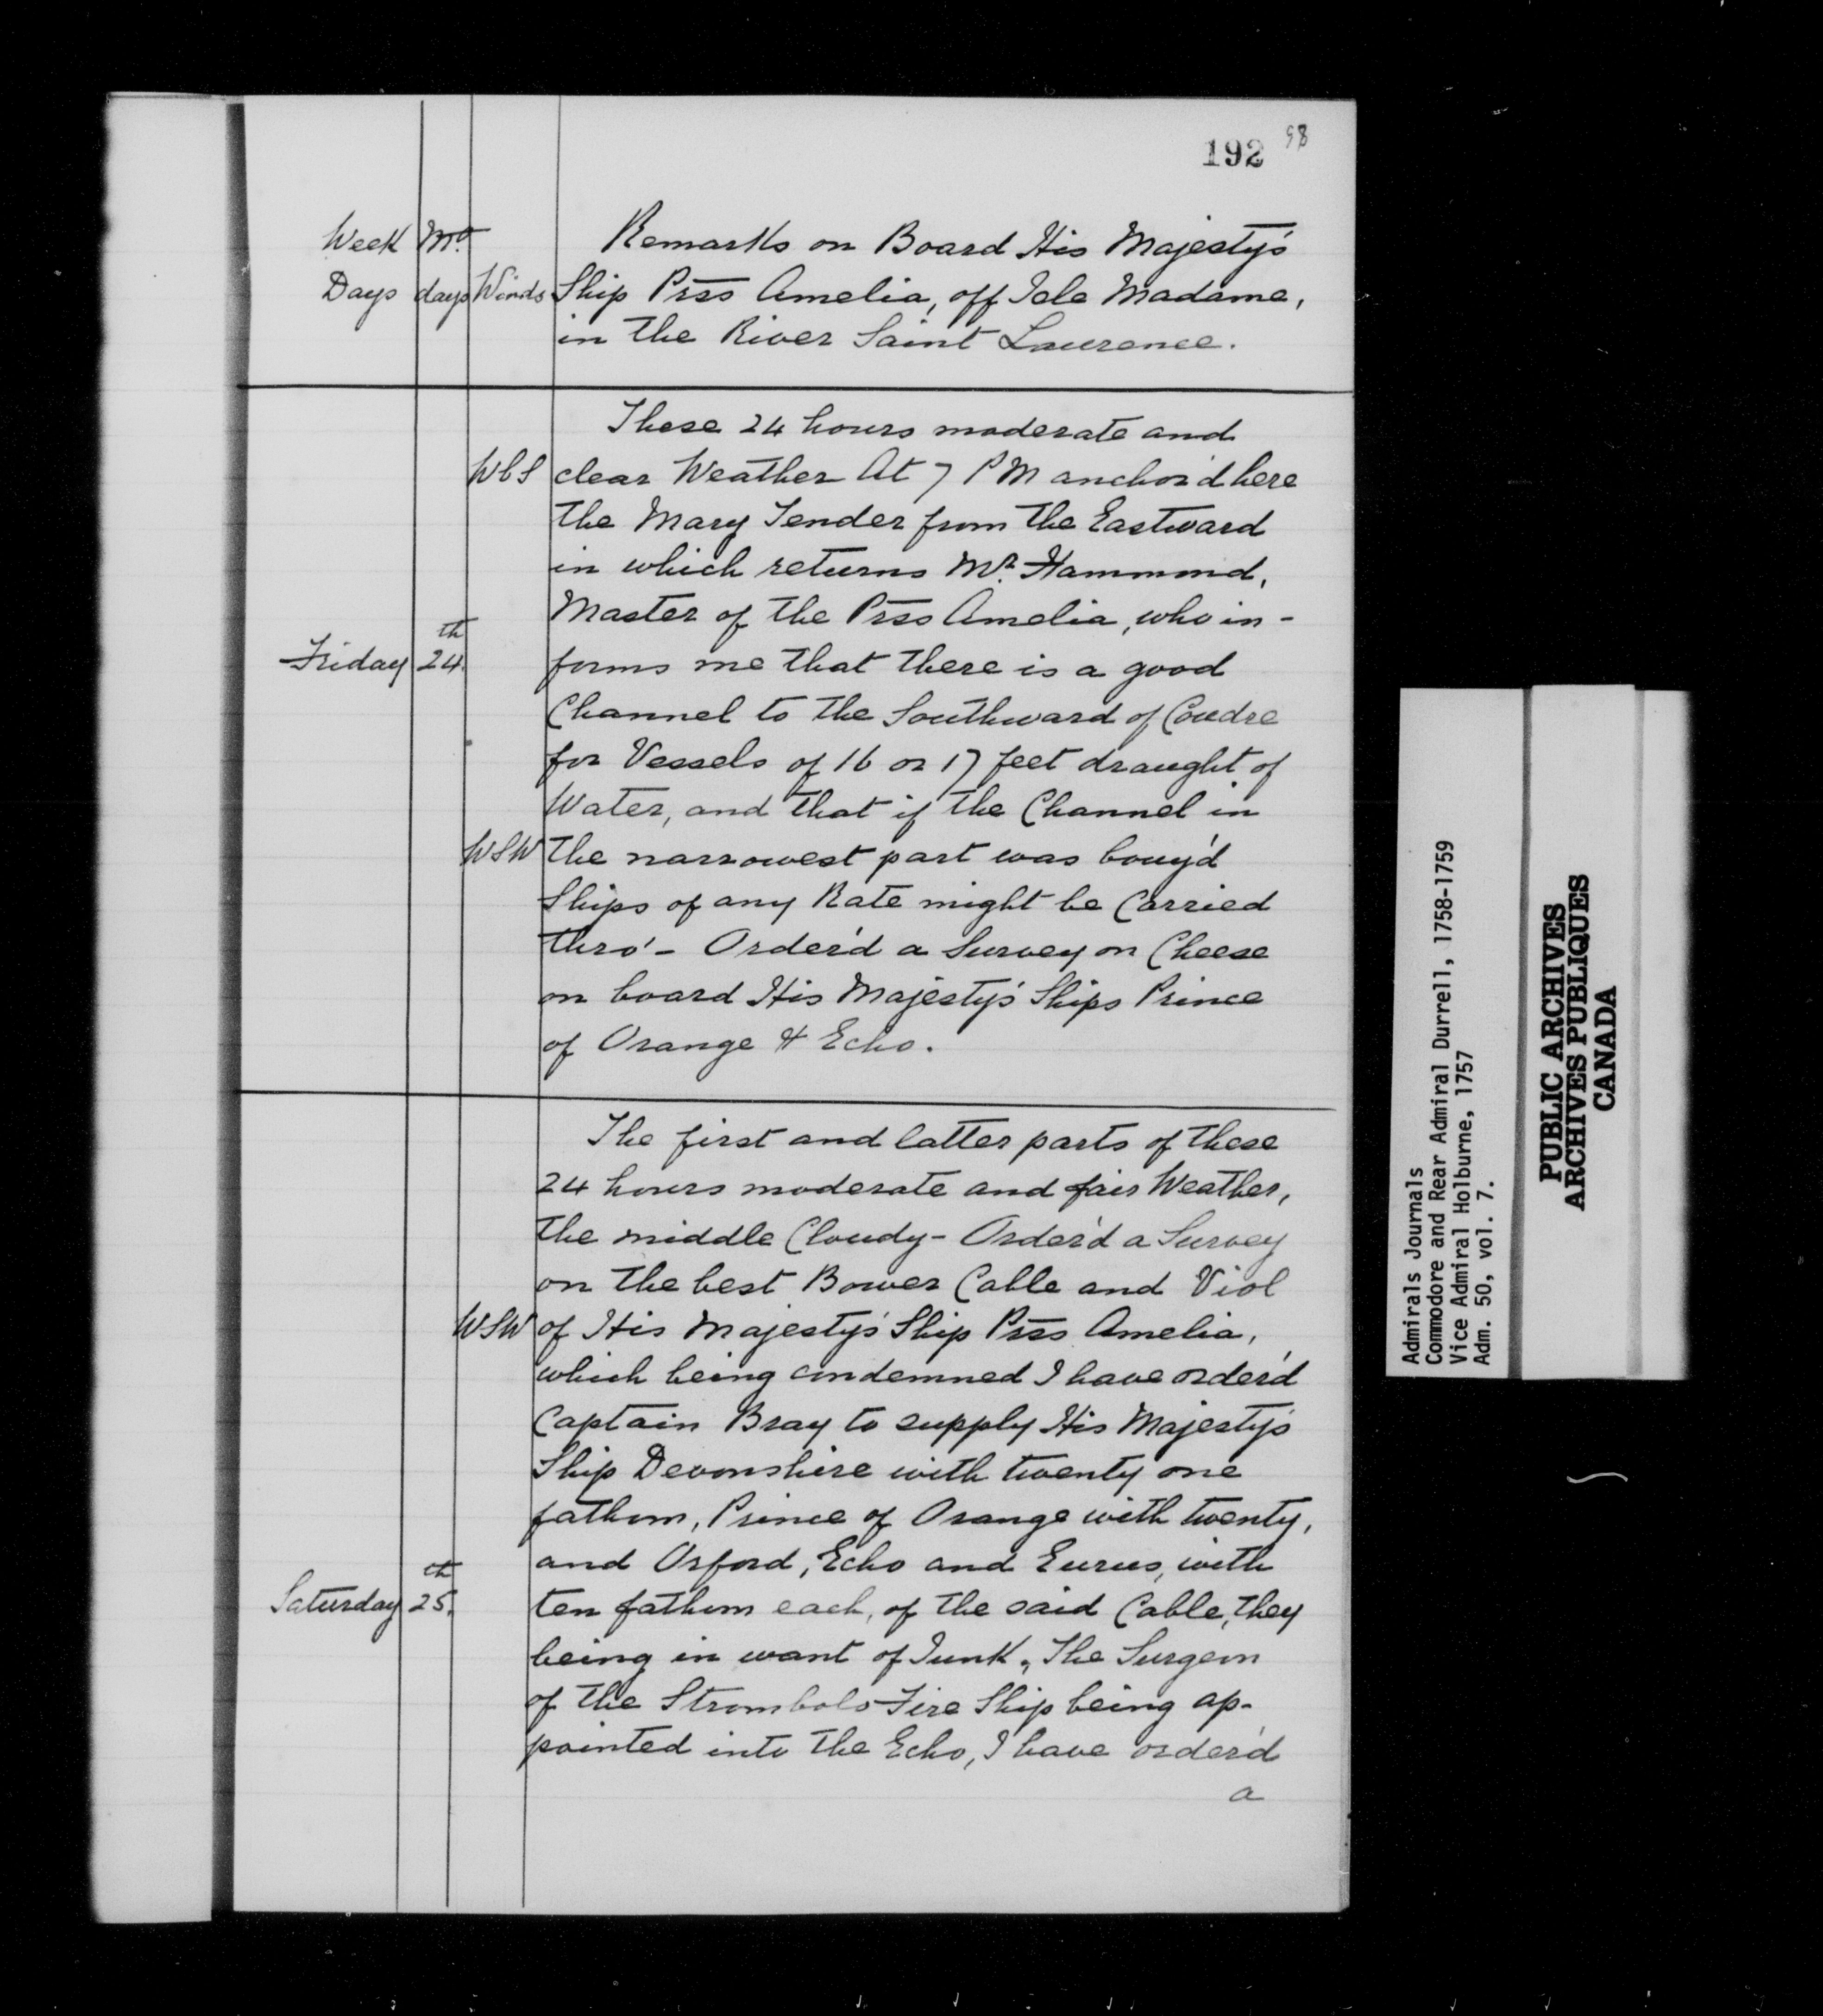 192 98
Week Mo. Remarks on Board His Majesty's
Days days Winds Ship Prss Amelia, off Isle Madame,
in the River Saint Laurence.
These 24 hours moderate and
WbS clear Weather At 7 PM anchor'd here
the Mary Tender from the Eastward
in which returns Mr. Hammond,
Master of the Prss Amelia, who in-
Friday 24th. forms me that there is a good
Channel to the Southward of Coudre
for Vessels of 16 or 17 feet draught of
Water, and that if the Channel in
WSW the narrowest part was bouy'd
Ships of any Rate might be Carried
thro' - Order'd a Survey on Cheese
on board His Majesty's Ships Prince
of Orange & Echo.
The first and latter parts of these
24 hours moderate and fair Weather,
the middle Cloudy - Order'd a Survey
on the best Bower Cable and Viol
WSW of His Majesty's Ship Prss Amelia,
which being condemned I have order'd
Captain Bray to supply His Majesty's
Ship Devonshire with twenty one
fathom, Prince of Orange with twenty,
and Orford, Echo and Eurus, with
Saturday 25th. ten fathom each, of the said Cable, they
being in want of Junk, The Surgeon
of the Strombolo Fire Ship being ap-
pointed into the Echo, I have order'd
a
Admirals Journals
Commodore and Rear Admiral Durrell, 1758-1759
Vice Admiral Holburne, 1757
Adm. 50, vol. 7.
PUBLIC ARCHIVES
ARCHIVES PUBLIQUES
CANADA